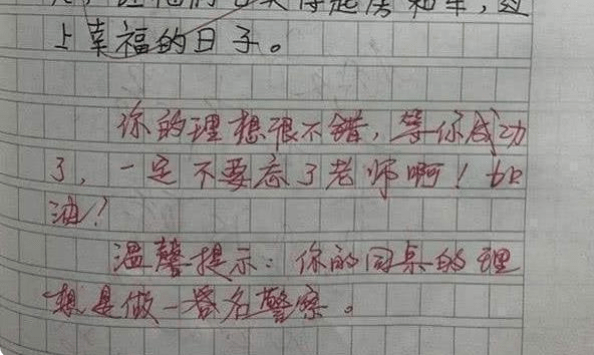 买得起房和车,过
上幸福的日子。
你的理想很不错,等你成功
了,一定不要忘了老师啊!加
油!
温馨提示:你的同桌的理
想是做一名警察。